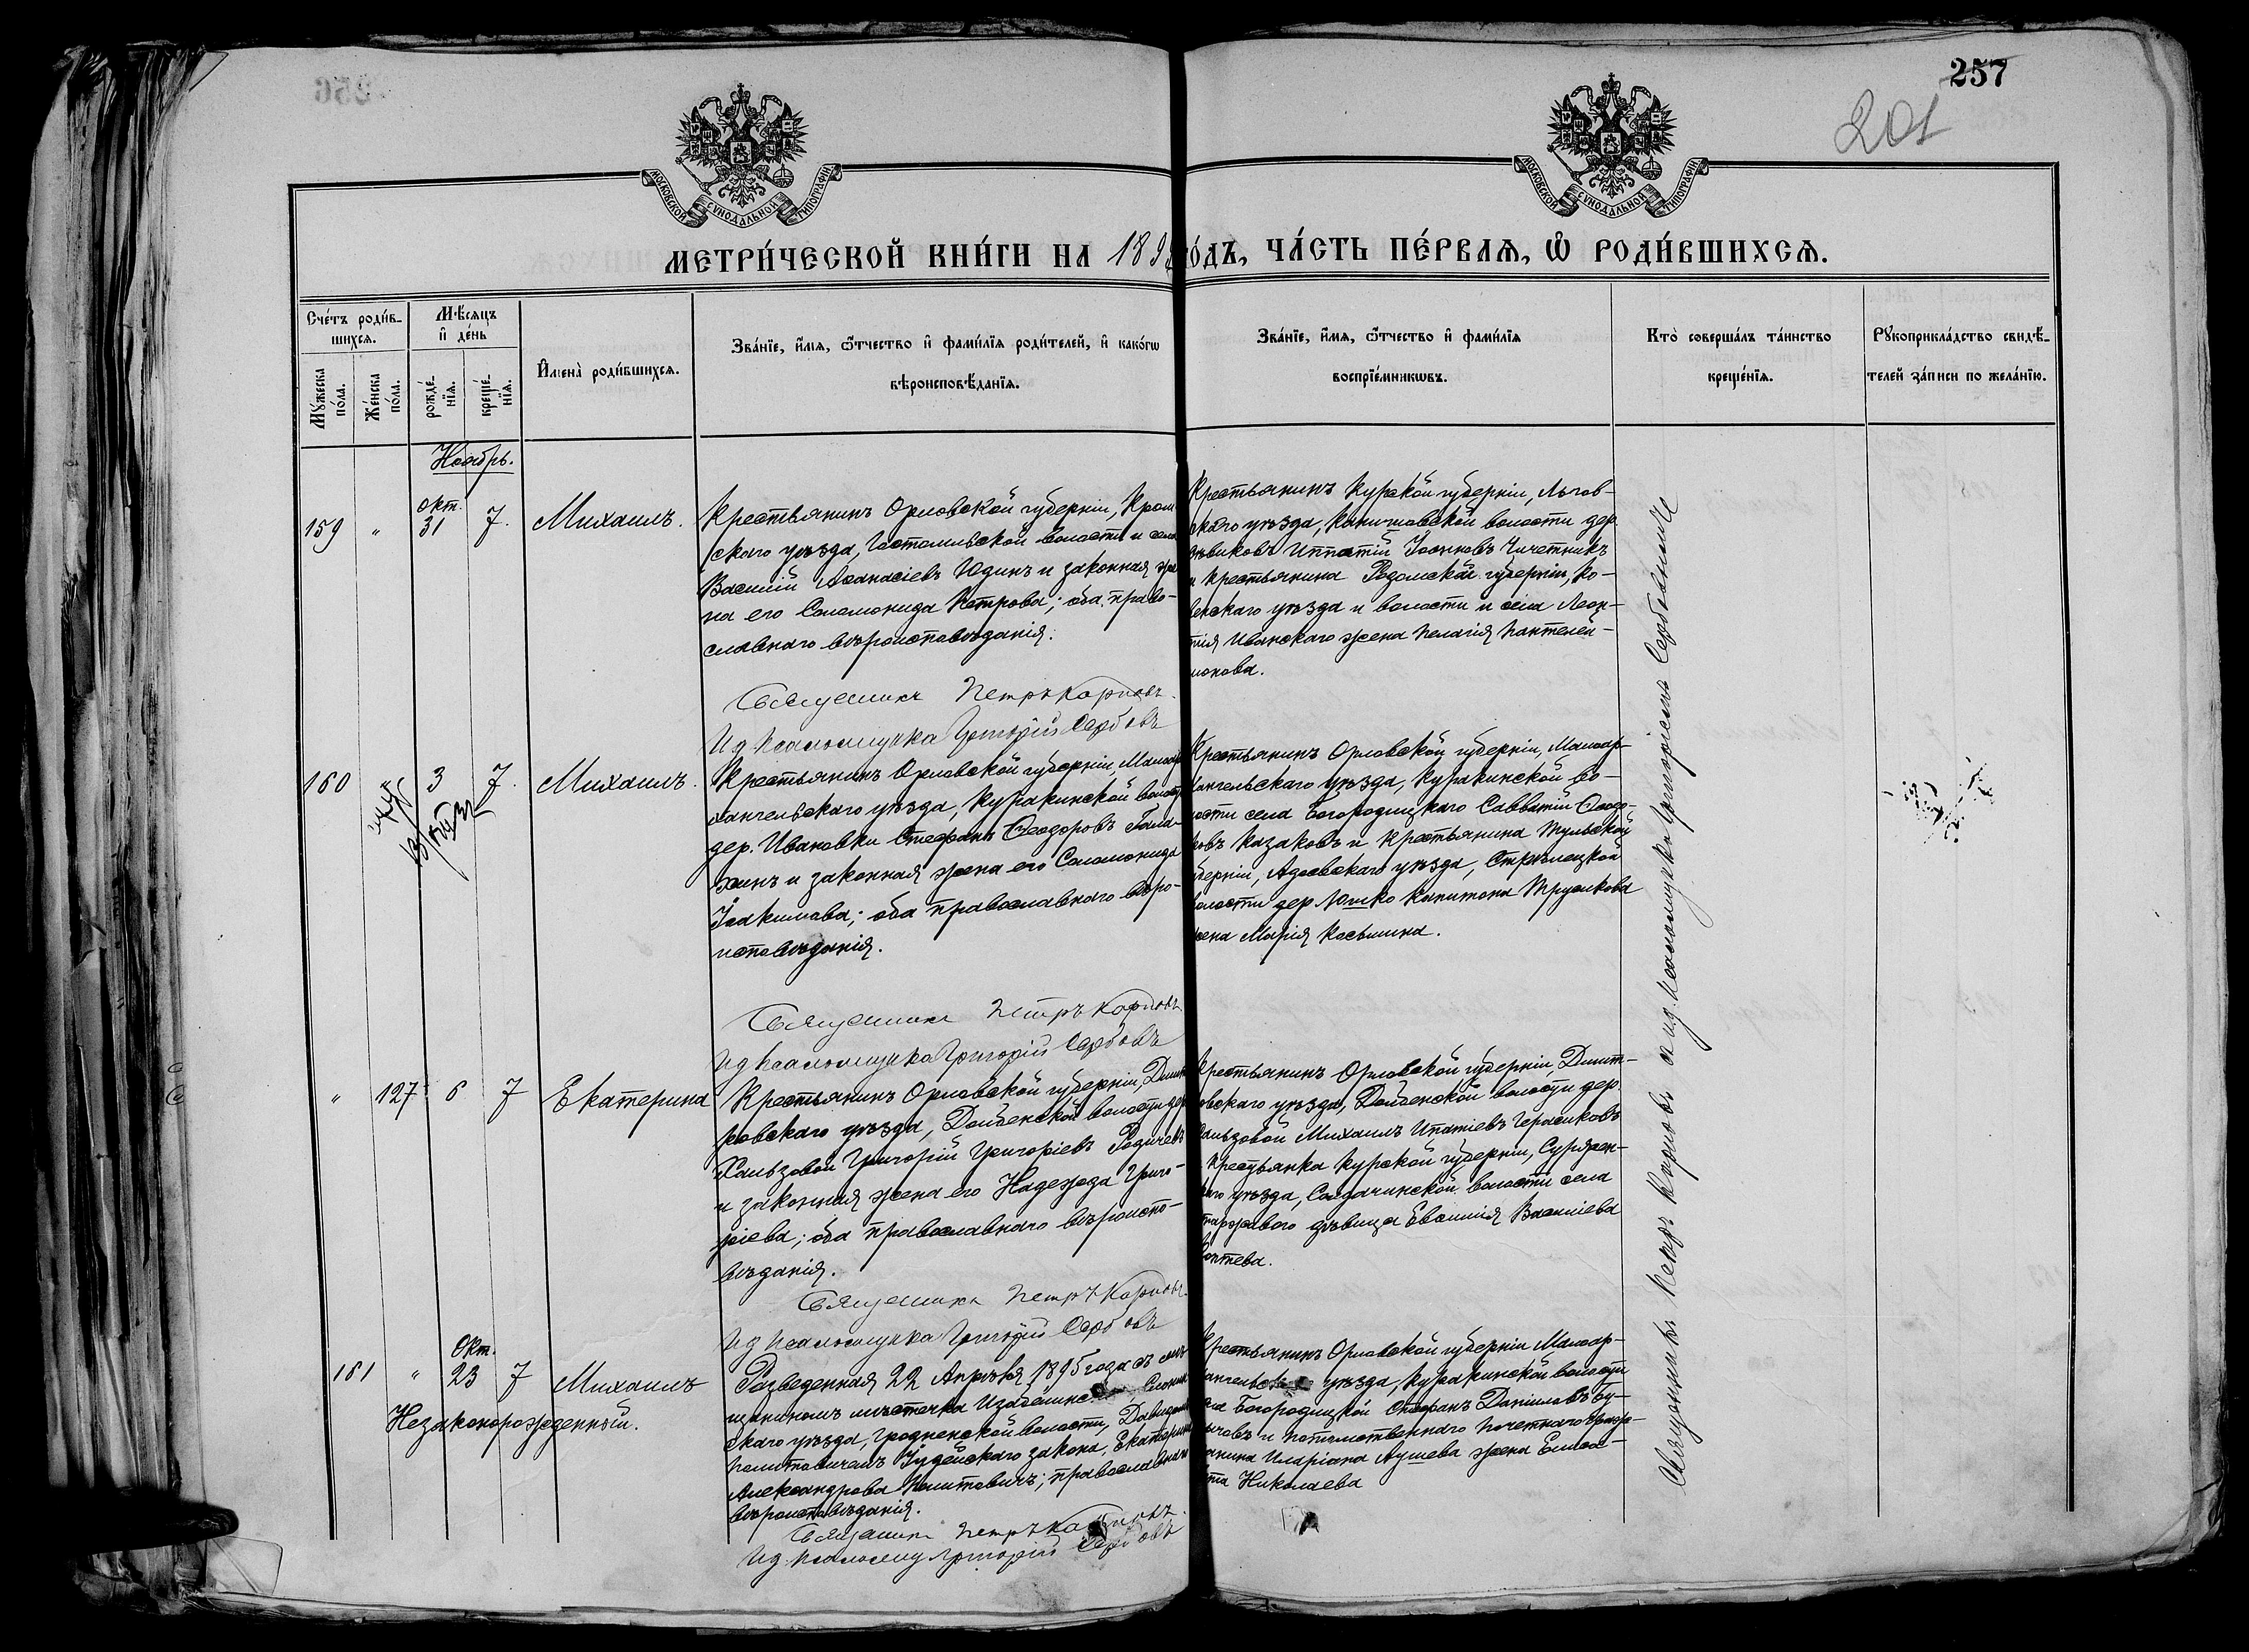 257
201
МОСКОВСКОЙ СУНОДАЛЬНОЙ ТИПОГРАФІИ
МОСКОВСКОЙ СУНОДАЛЬНОЙ ТИПОГРАФІИ
МЕТРИ́ЧЕСКОЙ КНИ́ГИ НА 189 го́дъ, ЧА́СТЬ ПЕ́РВАѦ, Ѽ РОДИ́ВШИХСѦ.
Сче́тъ роди́в-
шихсѧ.
Мꙋ́жеска по́ла.
Же́нска по́ла.
Мѣ́сѧцъ
и҆ де́нь
рожде́-
нїѧ.
креще́-
нїѧ.
И҆мена̀ роди́вшихсѧ.
Зва́нїе, и҆́мѧ, ѻ҆́тчество и҆ фами́лїѧ роди́телей, и҆ како́гѡ
вѣроисповѣ́данїѧ.
Зва́нїе, и҆́мѧ, ѻ҆́тчество и҆ фами́лїѧ
воспрїе́мникѡвъ.
Кто̀ соверша́лъ та́инство
креще́нїѧ.
Рꙋкоприкла́дство свидѣ́-
телей за́писи по жела́нїю.
Ноябрь.
159 " окт. 31 7. Михаилъ.
Крестьянинъ Орловской губерніи, Кром-
скаго уѣзда, Гостомльской волости и села
Василій Аѳанасіевъ Юдинъ и законная же-
на его Соломонида Петрова; оба право-
славнаго вѣроисповѣданія.
Священникъ Петръ Карповъ.
И д псаломщика Григорій Сербовъ
Крестьянинъ Курской губерніи, Льгов-
скаго уѣзда, дер.
Иппатій
и крестьянина губерніи, Ко-
венскаго уѣзда и волости и села Леон-
тія Иванскаго жена Пелагія Пантелей-
монова.
160 3 7. Михаилъ.
Крестьянинъ Орловской губерніи, Малоар-
хангельскаго уѣзда, Куракинской волости
дер. Ивановки Стефанъ Ѳеодоровъ
и законная жена его Соломонида
Іоакимова; оба православнаго вѣро-
исповѣданія.
Священникъ Петръ Карповъ
И д псаломщика Григорій Сербовъ
Крестьянинъ Орловской губерніи, Малоар-
хангельскаго уѣзда, Куракинской во-
лости села Богородицкаго Савватій Ѳеодо-
ровъ Казаковъ и крестьянина Тульской
губерніи, уѣзда, Стрѣлецкой
волости дер. Капитона Трусикова
жена Марія Косьмина.
" 127 6 7 Екатерина
Крестьянинъ Орловской губерніи, Дмит-
ровскаго уѣзда, волости дер
Хальзовой Григорій Григоріевъ Родичевъ
и законная жена его Надежда Григо-
ріева; оба православнаго вѣроиспо-
вѣданія.
Священникъ Петръ Карповъ.
И д псаломщика Григорій Сербовъ
Крестьянинъ Орловской губерніи, Дмит-
ровскаго уѣзда, волости дер
Хальзовой Михаилъ Ипатіевъ Герасиковъ
и крестьянка Курской губерніи, Суджан-
скаго уѣзда, Салдачинской волости села
дѣвица Евѳимія Василіева
161 " Окт. 23 7 Михаилъ
Незаконорожденный.
Разведенная 22 Апрѣля 1895 года съ мѣ-
щаниномъ мѣстечка Слоним-
скаго уѣзда, Гродненской волости, Давидомъ
Іудейскаго закона, Екатерина
Александрова православнаго
вѣроисповѣданія.
Священникъ Петръ Карповъ.
И д псаломщ Григорій Сербовъ
Крестьянинъ Орловской губерніи Малоар-
хангельск уѣзда, Куракинской волости
села Богородицкой Стефанъ Даніиловъ Бу-
и потомственнаго почетнаго граж-
данина Иларіона Аушева жена Елиса-
вета Николаева
Священникъ Петръ Карповъ и ид. псаломщика Григоріемъ Сербовымъ